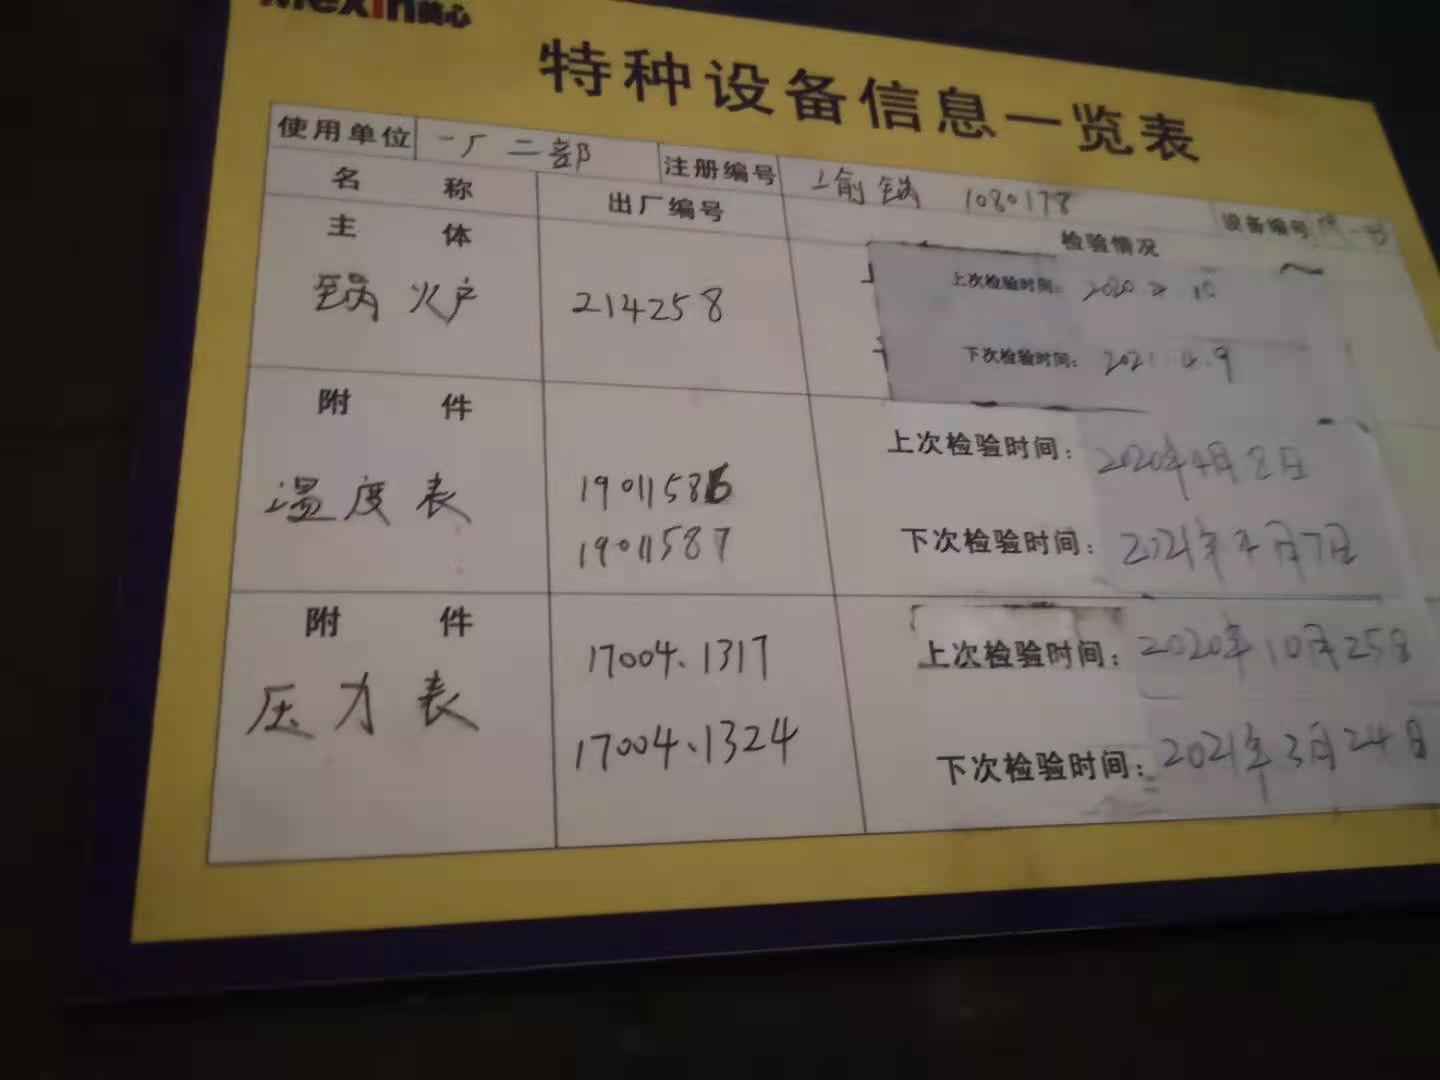 Mexin美心
特种设备信息一览表
使用单位 一厂二部 注册编号 渝锅 1080178 设备编号
名称 出厂编号 检验情况
主体
锅炉 214258
上次检验时间: 2020.4.10
下次检验时间: 2021.4.9
附件
温度表
19011586
19011587
上次检验时间: 2020年4月8日
下次检验时间: 2021年4月7日
附件
压力表
17004.1317
17004.1324
上次检验时间: 2020年10月25日
下次检验时间: 2021年3月24日